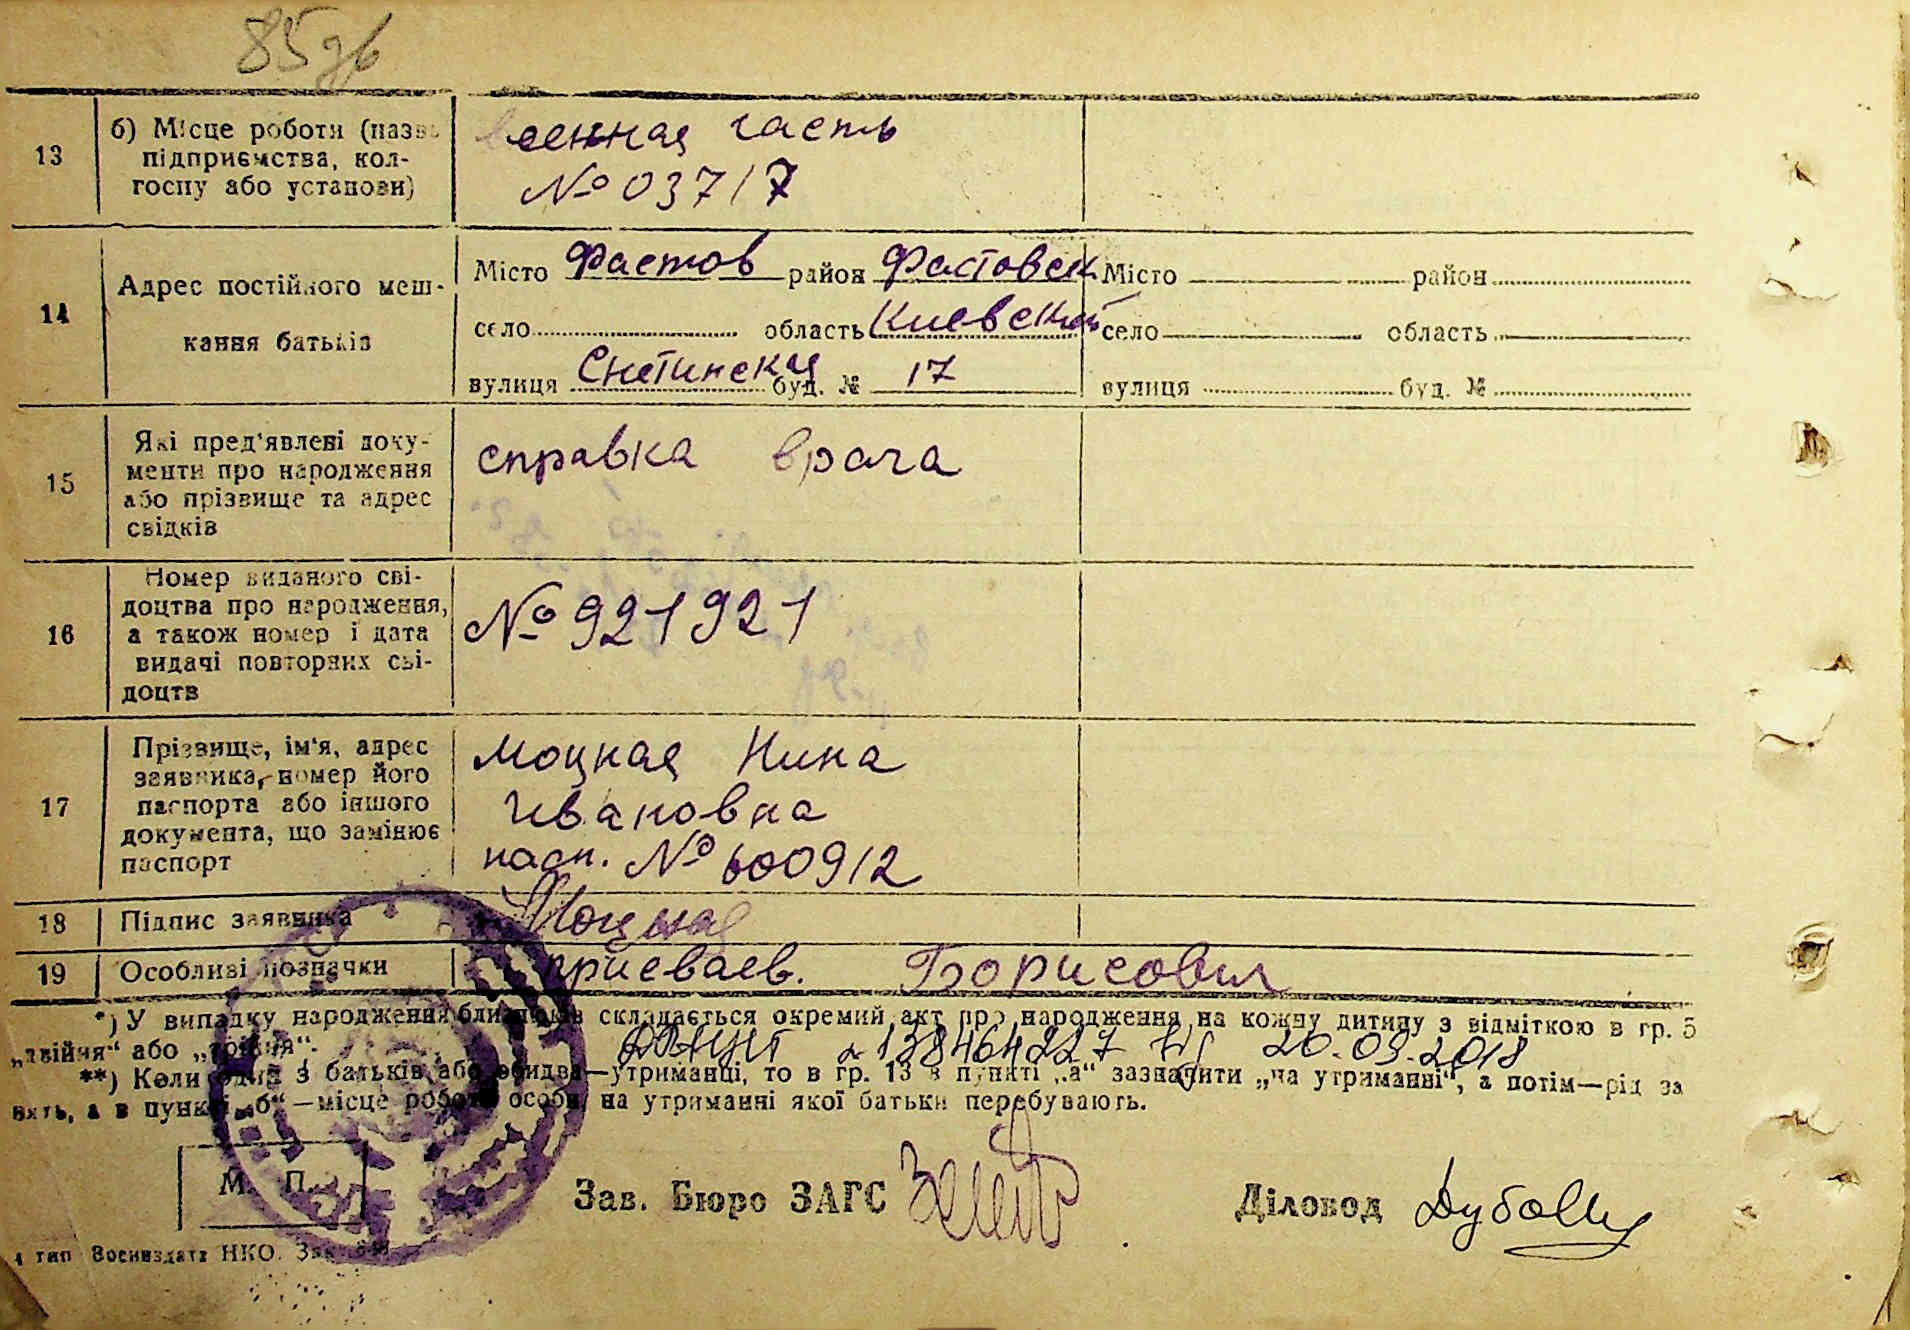 85 зв
13
б) Місце роботи (назва
підприємства, кол-
госпу або установи)
военная часть
№ 03717
14
Адрес постійного меш-
кання батьків
Місто Фастов район Фастовск
село область Киевской
вулиця Снетинская буд. № 17
Місто район
село область
вулиця буд. №
15
Які пред'явлені доку-
менти про народження
або прізвище та адрес
свідків
справка врача
16
Номер виданого сві-
доцтва про народження,
а також номер і дата
видачі повторних сві-
доцтв
№ 921921
17
Прізвище, ім'я, адрес
заявника, номер його
паспорта або іншого
документа, що замінює
паспорт
Моцная Нина
Ивановна
пасп. № 600912
18 Підпис заявника Моцная
19 Особливі позначки присваев. Борисович
*) У випадку народження близнюків складається окремий акт про народження на кожну дитину з відміткою в гр. 5
„двійня" або „трійня".
а 138464227 від 20.09.2018
**) Коли один з батьків або обидва—утриманці, то в гр. 13 в пункті „а" зазначити „на утриманні", а потім—рід за
нять, а в пункті „б"—місце роботи особи, на утриманні якої батьки перебувають.
М. П.
Зав. Бюро ЗАГС
Діловод
4 тип Воениздата НКО. Зак.